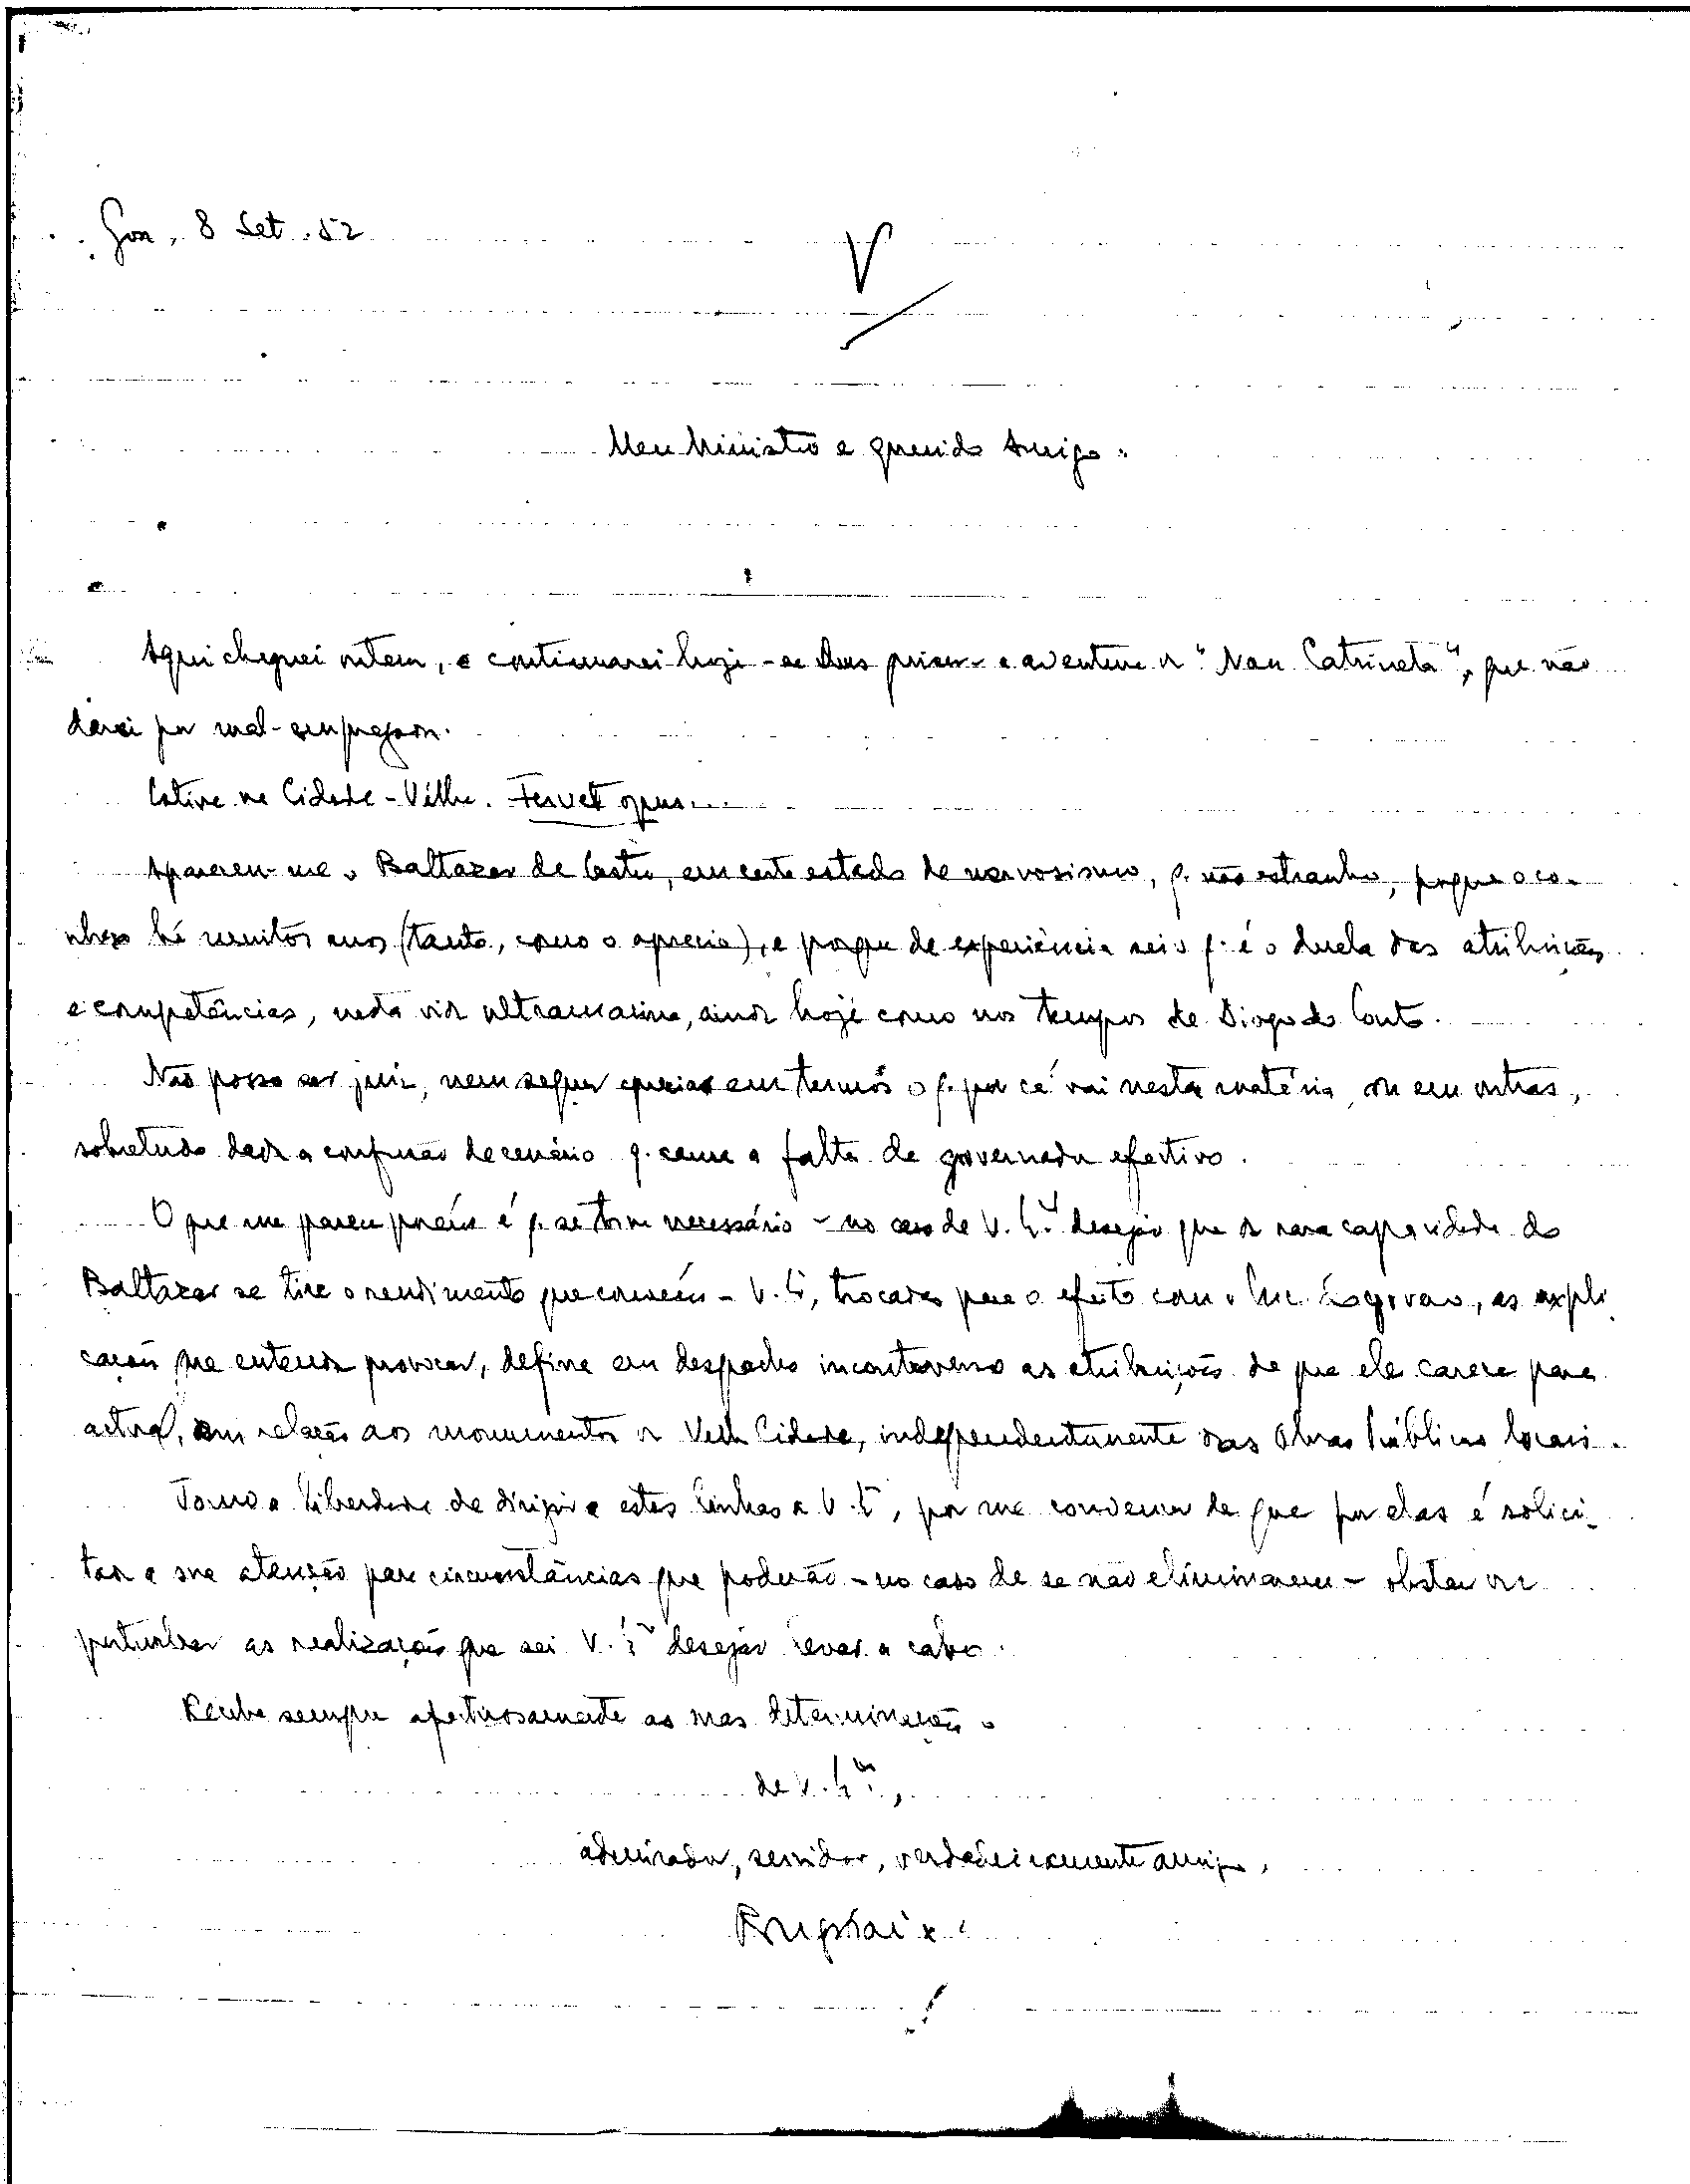 Goa, 8 Set. 52
V
Meu Ministro e querido Amigo:
Aqui cheguei ontem, e continuarei hoje - se Deus quiser - a aventura da "Nau Catrineta", que não
darei por mal-empregada.
Estive na Cidade-Velha. Fervet opus...
Apareceu-me o Baltazar de Castro, em certo estado de nervosismo, q. não estranho, porque o co-
nheço há muitos anos (tanto, como o aprecio), e porque de experiência sei o q. é o duelo das atribuições
e competências, nesta vida ultramarina, ainda hoje como nos tempos de Diogo do Couto.
Não posso ser juiz, nem sequer apreciar em termos o q. por cá vai nesta matéria, ou em outras,
sobretudo dada a confusão de cenário q. causa a falta de governador efectivo.
O que me parece porém é q. se torna necessário - no caso de V. Exª desejar que da rara capacidade do
Baltazar se tire o rendimento que convém - V. Exª, trocadas para o efeito com o as expli-
cações que entenda provocar, defina em despacho incontroverso as atribuições de que ele carece para
actuar, em relação aos monumentos da Velha Cidade, independentemente das Obras Públicas locais.
Tomo a liberdade de dirigir estas linhas a V. Exª, por me convencer de que por elas é solici-
tada a sua atenção para circunstâncias que poderão - no caso de se não eliminarem - obstar ou
perturbar as realizações que sei V. Exª desejar levar a cabo.
Receba sempre afectuosamente as suas determinações
de V. Exª,
admirador, servidor, verdadeiramente amigo,